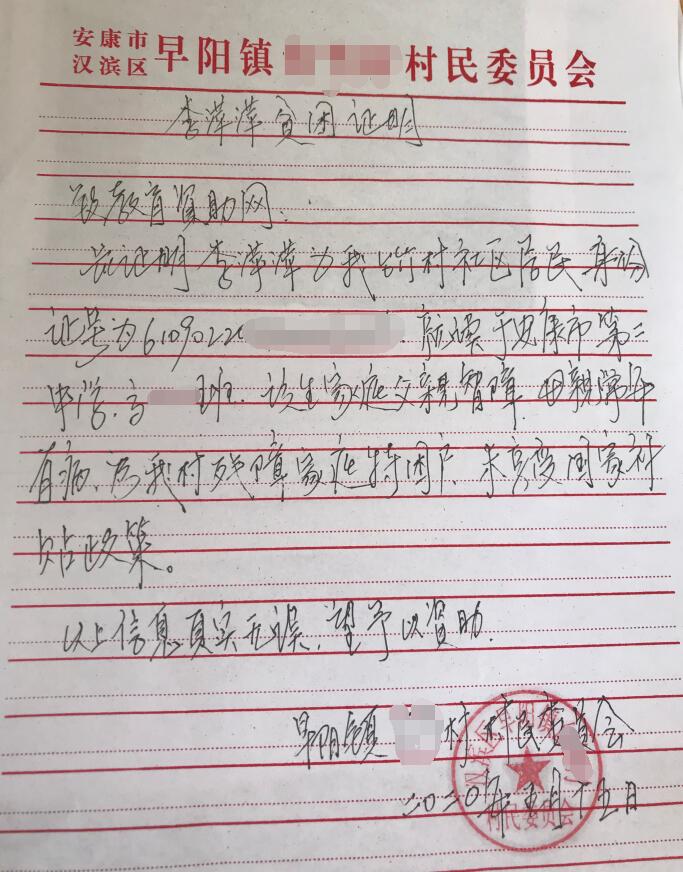 安康市
汉滨区 早阳镇 村民委员会
李萍萍贫困证明
致教育资助网:
兹证明李萍萍为我 村社区居民 身份
证号为6109022 就读于安康市第二
中学,高 班. 该生家庭父亲智障, 母亲常年
有病、为我村残障家庭特困户, 未享受国家补
贴政策。
以上信息真实无误, 望予以资助.
早阳镇 村村民委员会
二〇二〇年五月十五日
汉滨区早阳镇
村民委员会